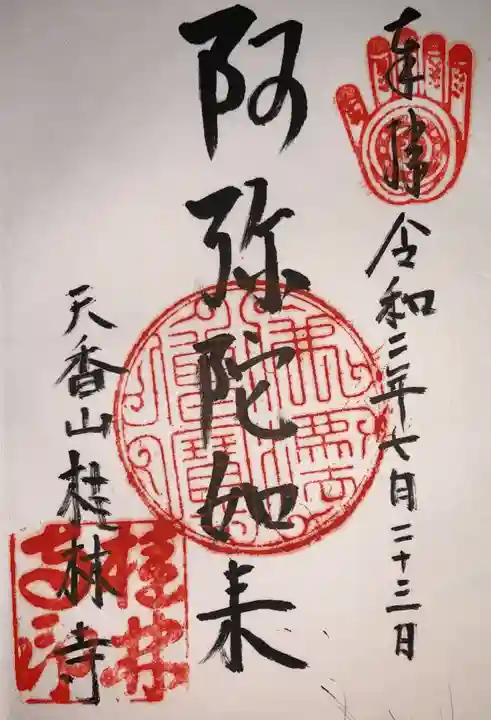 奉拝
令和二年七月二十三日
阿弥陀如来
佛法僧寶
天香山桂林寺
桂林寺